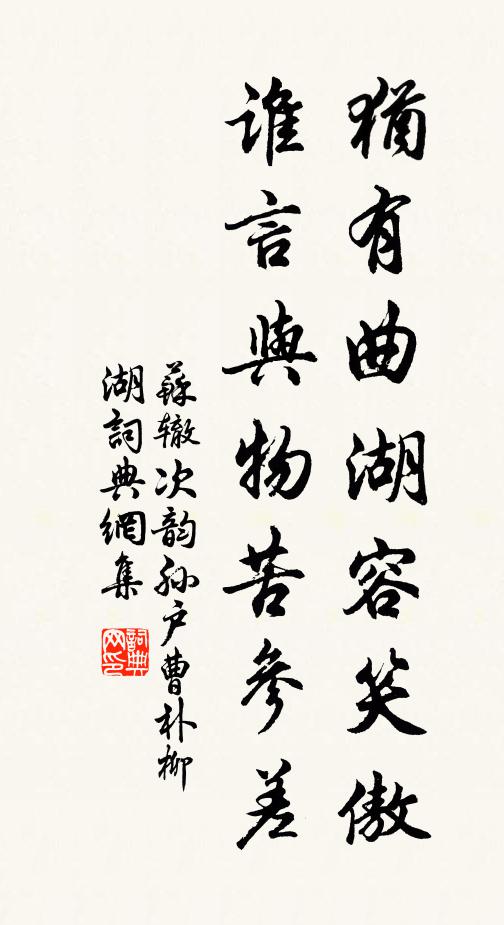 猶有曲湖容笑傲
誰言與物苦參差
蘇辙次韵孙户曹朴柳
湖詞典網集
詞典
网印